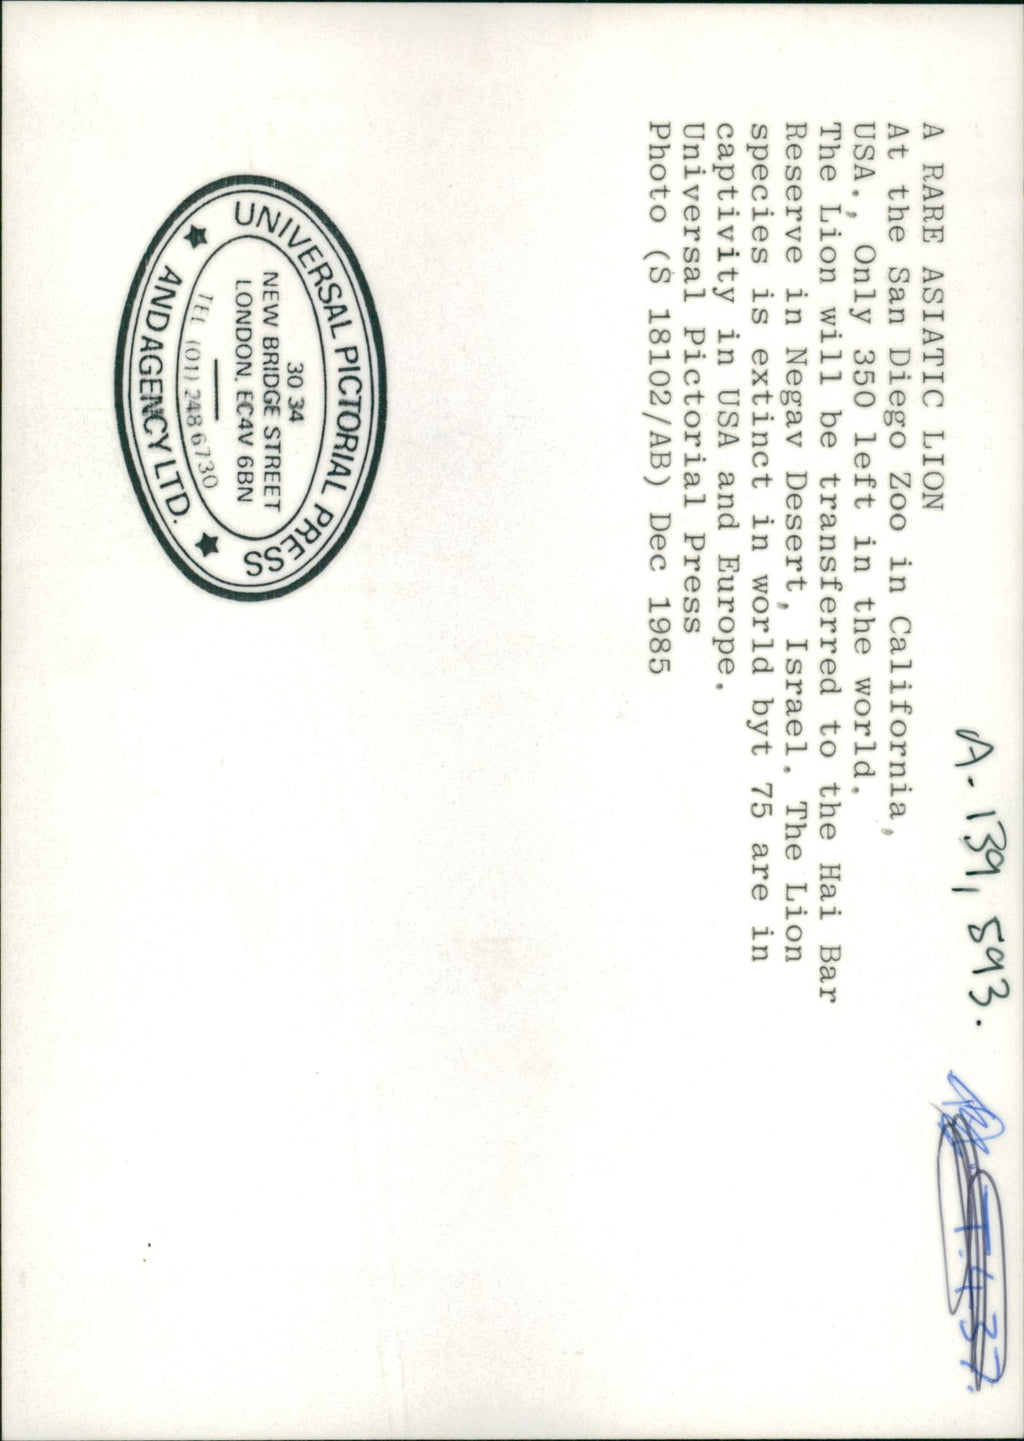 A. 139, 593.
A RARE ASIATIC LION
At the San Diego Zoo in California,
USA., Only 350 left in the world.
The Lion will be transferred to the Hai Bar
Reserve in Negav Desert, Israel. The Lion
species is extinct in world byt 75 are in
captivity in USA and Europe.
Universal Pictorial Press
Photo (S 18102/AB) Dec 1985
UNIVERSAL PICTORIAL PRESS
30 34
NEW BRIDGE STREET
LONDON, EC4V 6BN
TEL (01) 248 6730
AND AGENCY LTD.